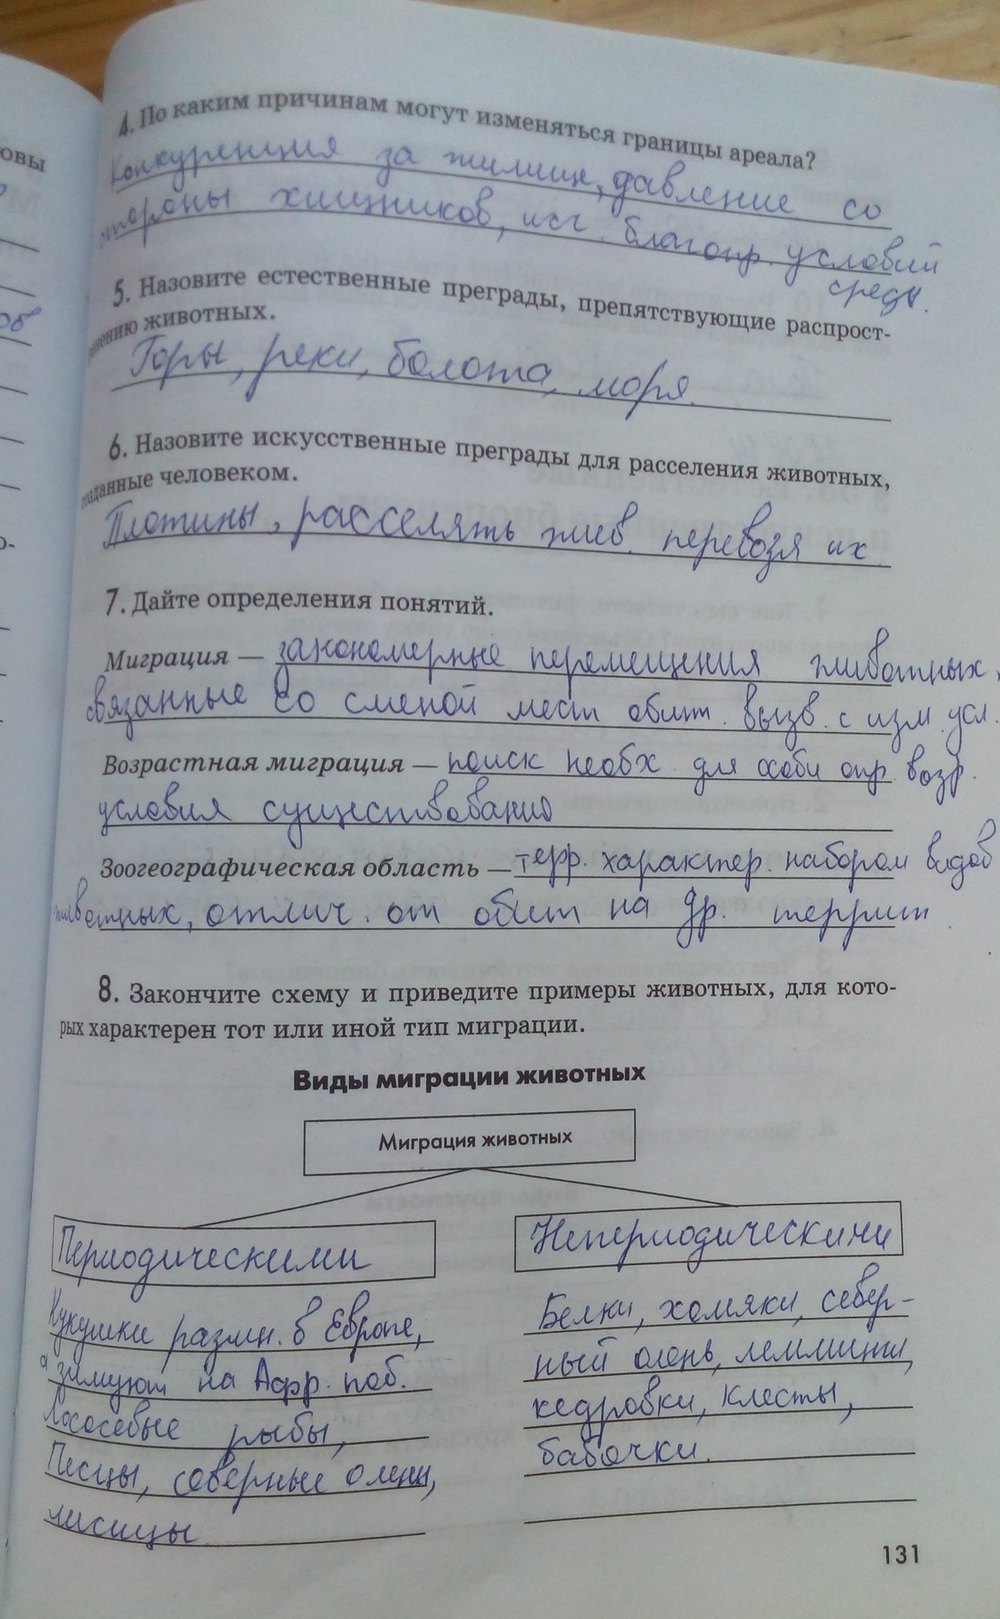 овы
4. По каким причинам могут изменяться границы ареала?
Конкуренция за жилище, давление со
стороны хищников, исч. благопр. условий
среды.
5. Назовите естественные преграды, препятствующие распрост-
ранению животных.
Горы, реки, болота, моря.
6. Назовите искусственные преграды для расселения животных,
созданные человеком.
Плотины, расселять жив. перевозя их
7. Дайте определения понятий.
Миграция — закономерные перемещения животных,
связанные со сменой мест обит. вызв. с изм. усл.
Возрастная миграция — поиск необх. для особи опр. возр.
условия существования
Зоогеографическая область — терр. характер. набором видов
животных, отлич. от обит на др. террит
8. Закончите схему и приведите примеры животных, для кото-
рых характерен тот или иной тип миграции.
Виды миграции животных
Миграция животных
Периодическими
Непериодическими
Кукушки размн. в Европе,
а зимуют на Афр. поб.
Лососевые рыбы,
Песцы, северные олени,
лисицы
Белки, хомяки, север-
ный олень, лемминги,
кедровки, клесты,
бабочки.
131